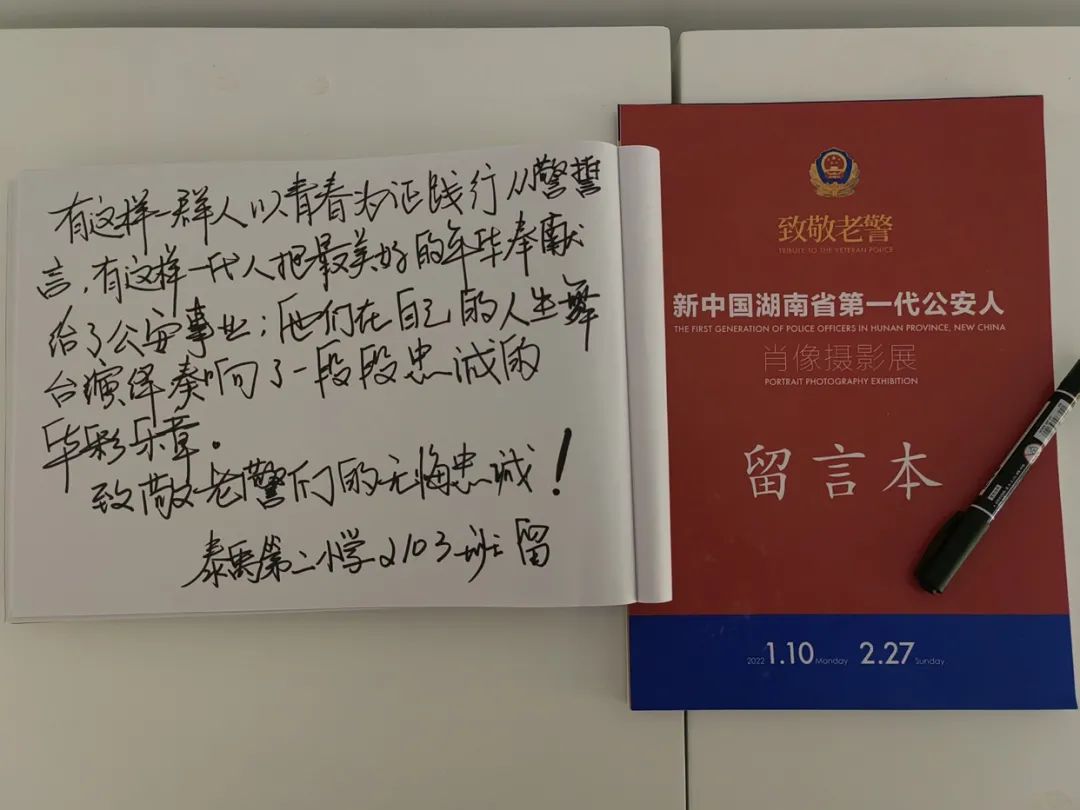 有这样一群人以青春为证践行从警誓
言,有这样一代人把最美好的年华奉献
给了公安事业;他们在自己的人生舞
台演绎奏响了一段段忠诚的
华彩乐章。
致敬老警们的无悔忠诚!
泰禹第二小学2103班留
致敬老警
TRIBUTE TO THE VETERAN POLICE
新中国湖南省第一代公安人
THE FIRST GENERATION OF POLICE OFFICERS IN HUNAN PROVINCE, NEW CHINA
肖像摄影展
PORTRAIT PHOTOGRAPHY EXHIBITION
留言本
2022 1.10 Monday 2.27 Sunday